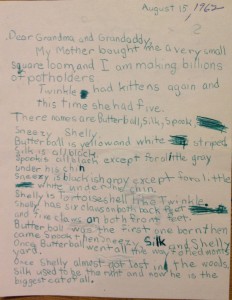 August 15, 1962
2
Dear Grandma and Grandaddy,
My Mother bought me a very small
square loom and I am making billions
of potholders.
Twinkle had kittens again and
this time she had five.
There names are Butterball, Silk, Spook,
Sneezy Shelly.
Butterball is yellow and white striped
Silk is all black
Spook is all black except for a little gray
under his chin
Sneezy is gray except for a little
white under chin.
Shelly is tortoise shell like Twinkle.
Shelly has six claws on both back feet
and five claws on both front feet.
Butterball was the first one born then
came Spook then Sneezy Silk and Shelly
Once Butterball went all the way
yard.
Once Shelly almost got lost in the woods
Silk used to be the runt and now he is the
biggest cat of all.